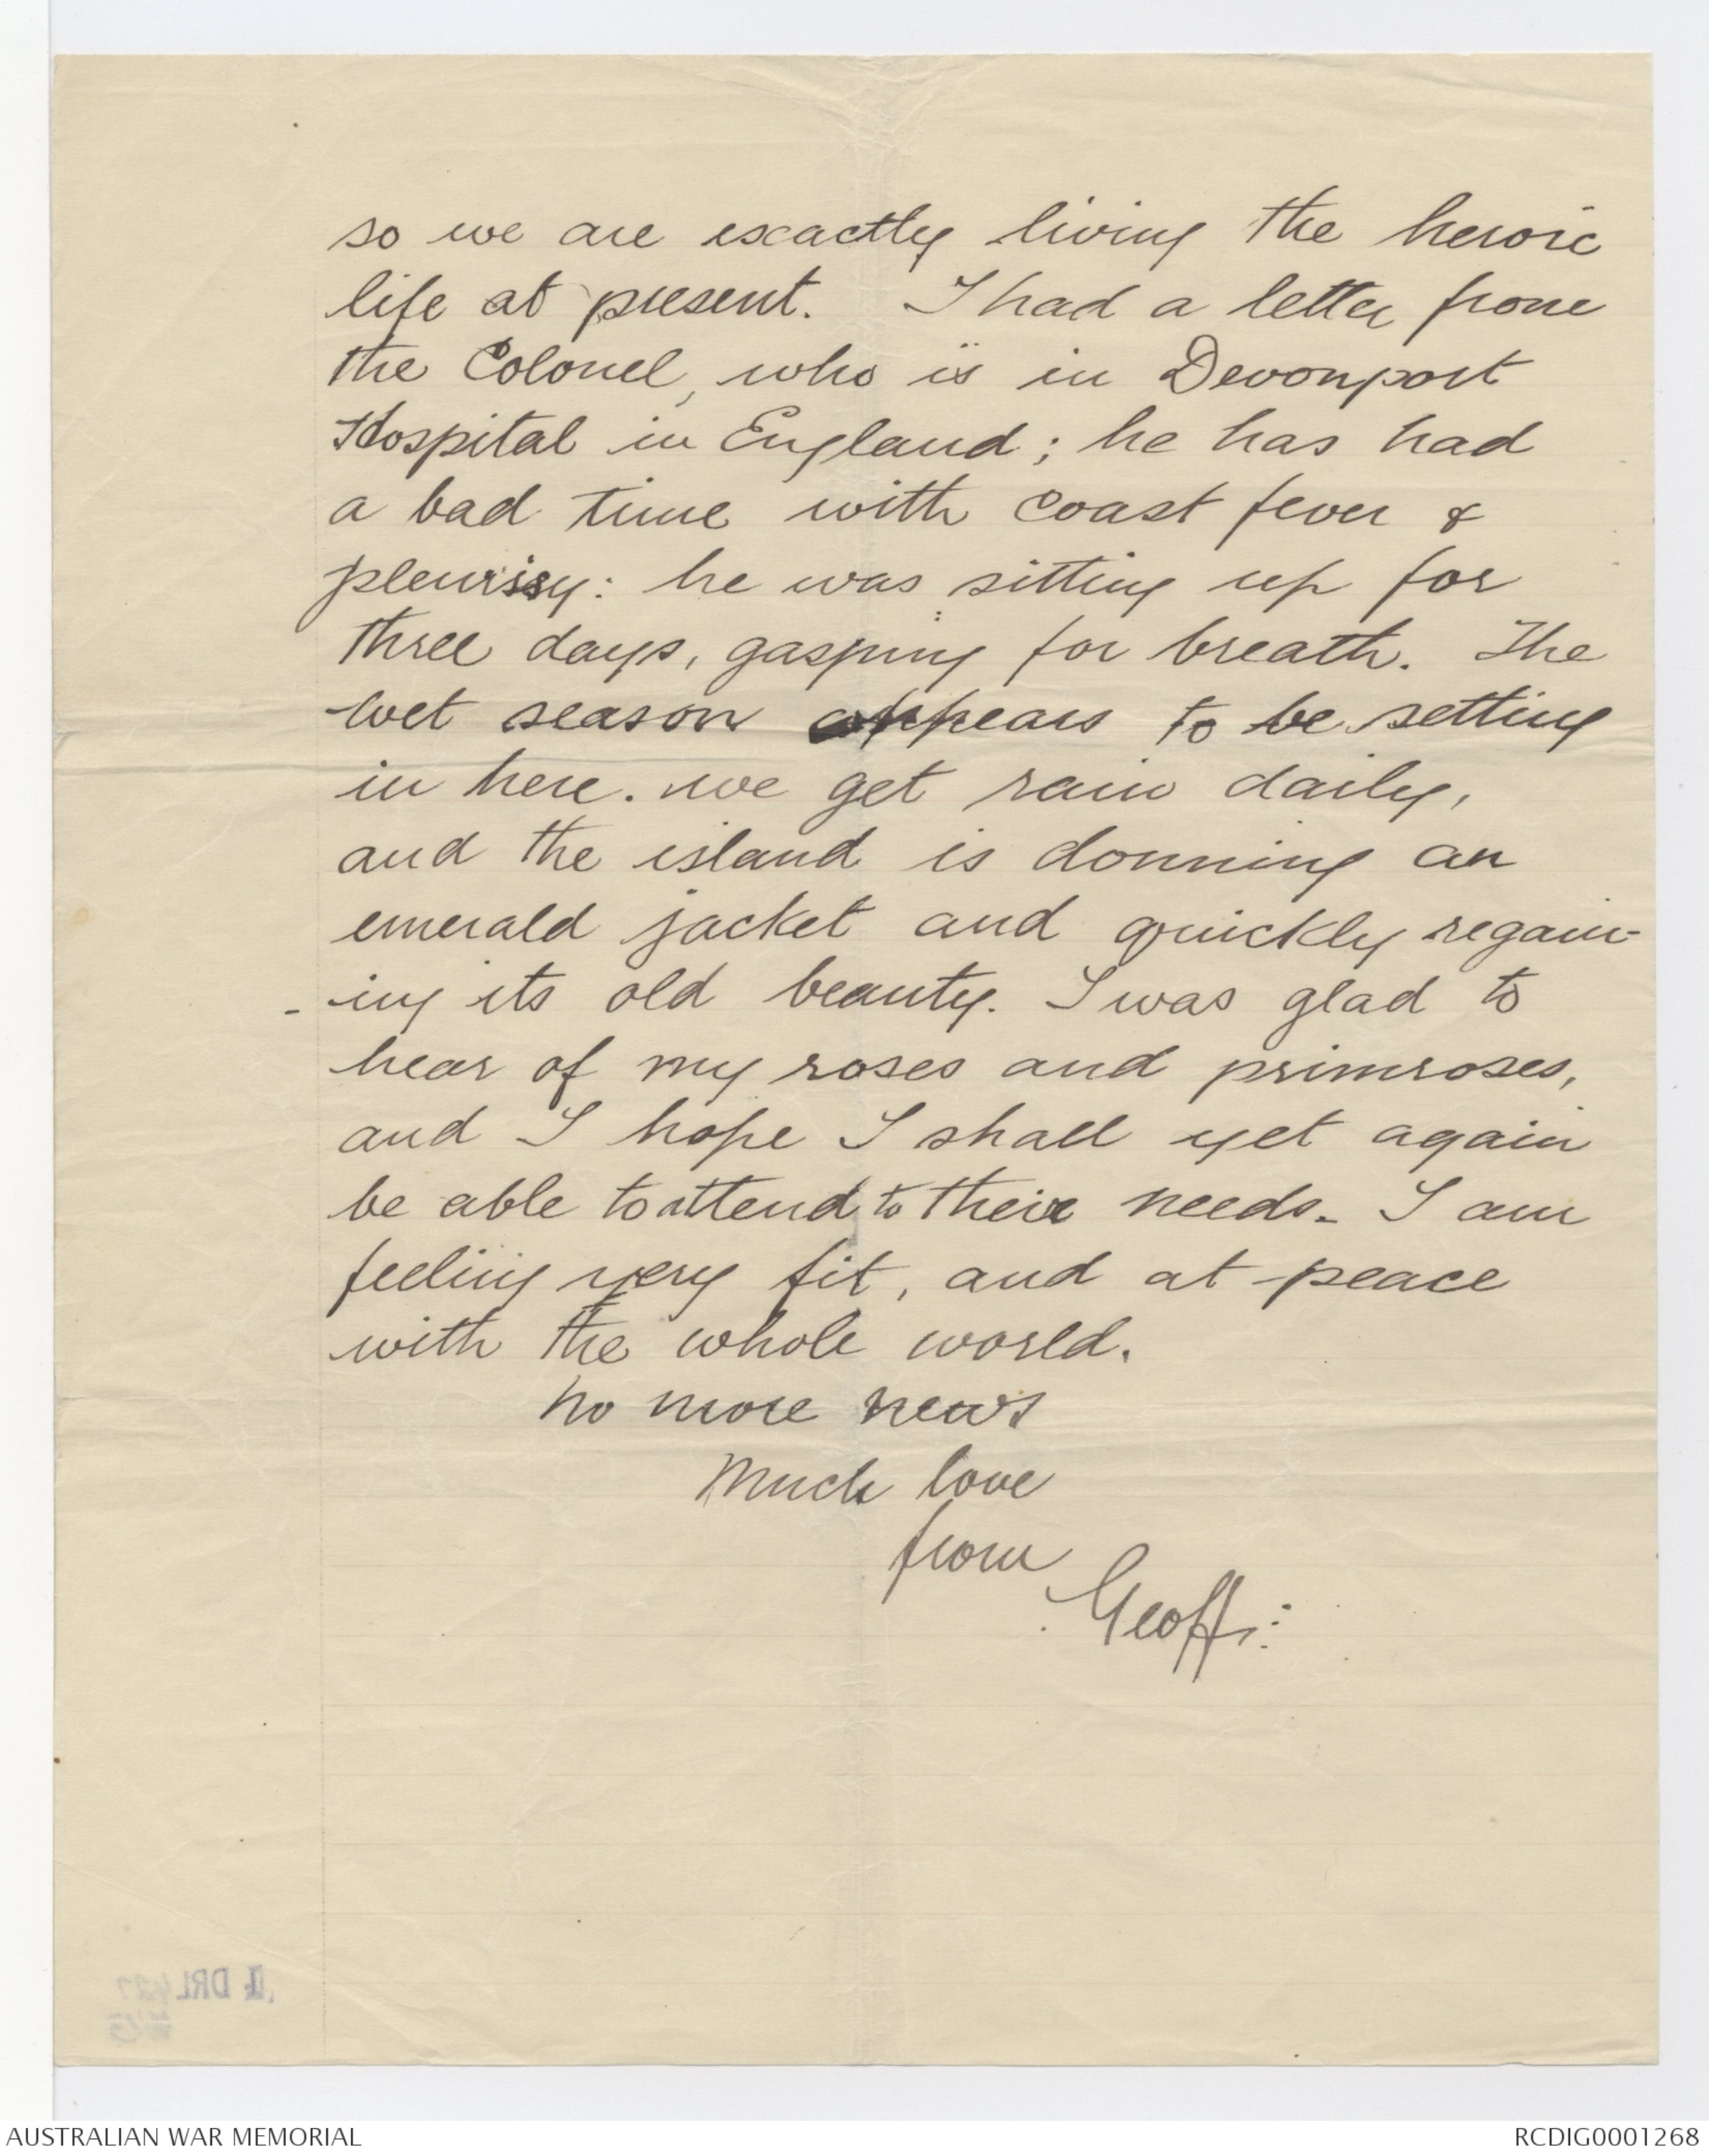 so we are exactly living the heroic
life at present. I had a letter from
the Colonel, who is in Devonport
Hospital in England; he has had
a bad time with coast fever &
pleurisy: he was sitting up for
three days, gasping for breath. The
wet season appears to be setting
in here. we get rain daily,
and the island is donning an
emerald jacket and quickly regain-
-ing its old beauty. I was glad to
hear of my roses and primroses,
and I hope I shall yet again
be able to attend to their needs. I am
feeling very fit, and at peace
with the whole world.
No more news
Much love
from
Geoff:
1 DRL 427
AUSTRALIAN WAR MEMORIAL
RCDIG0001268